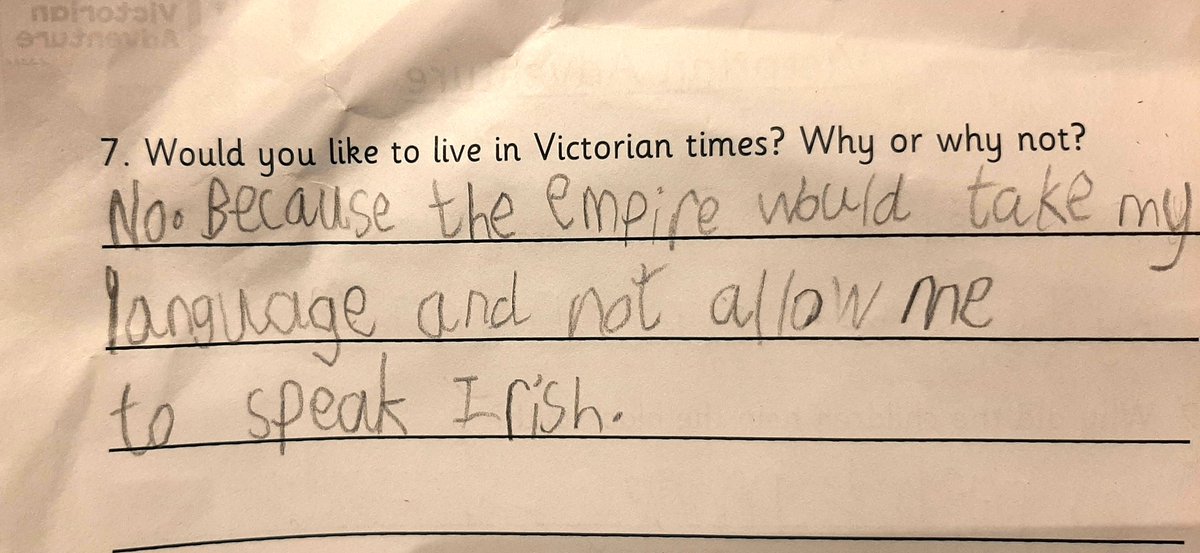 Victorian
Adventure
7. Would you like to live in Victorian times? Why or why not?
No. Because the empire would take my
language and not allow me
to speak Irish.